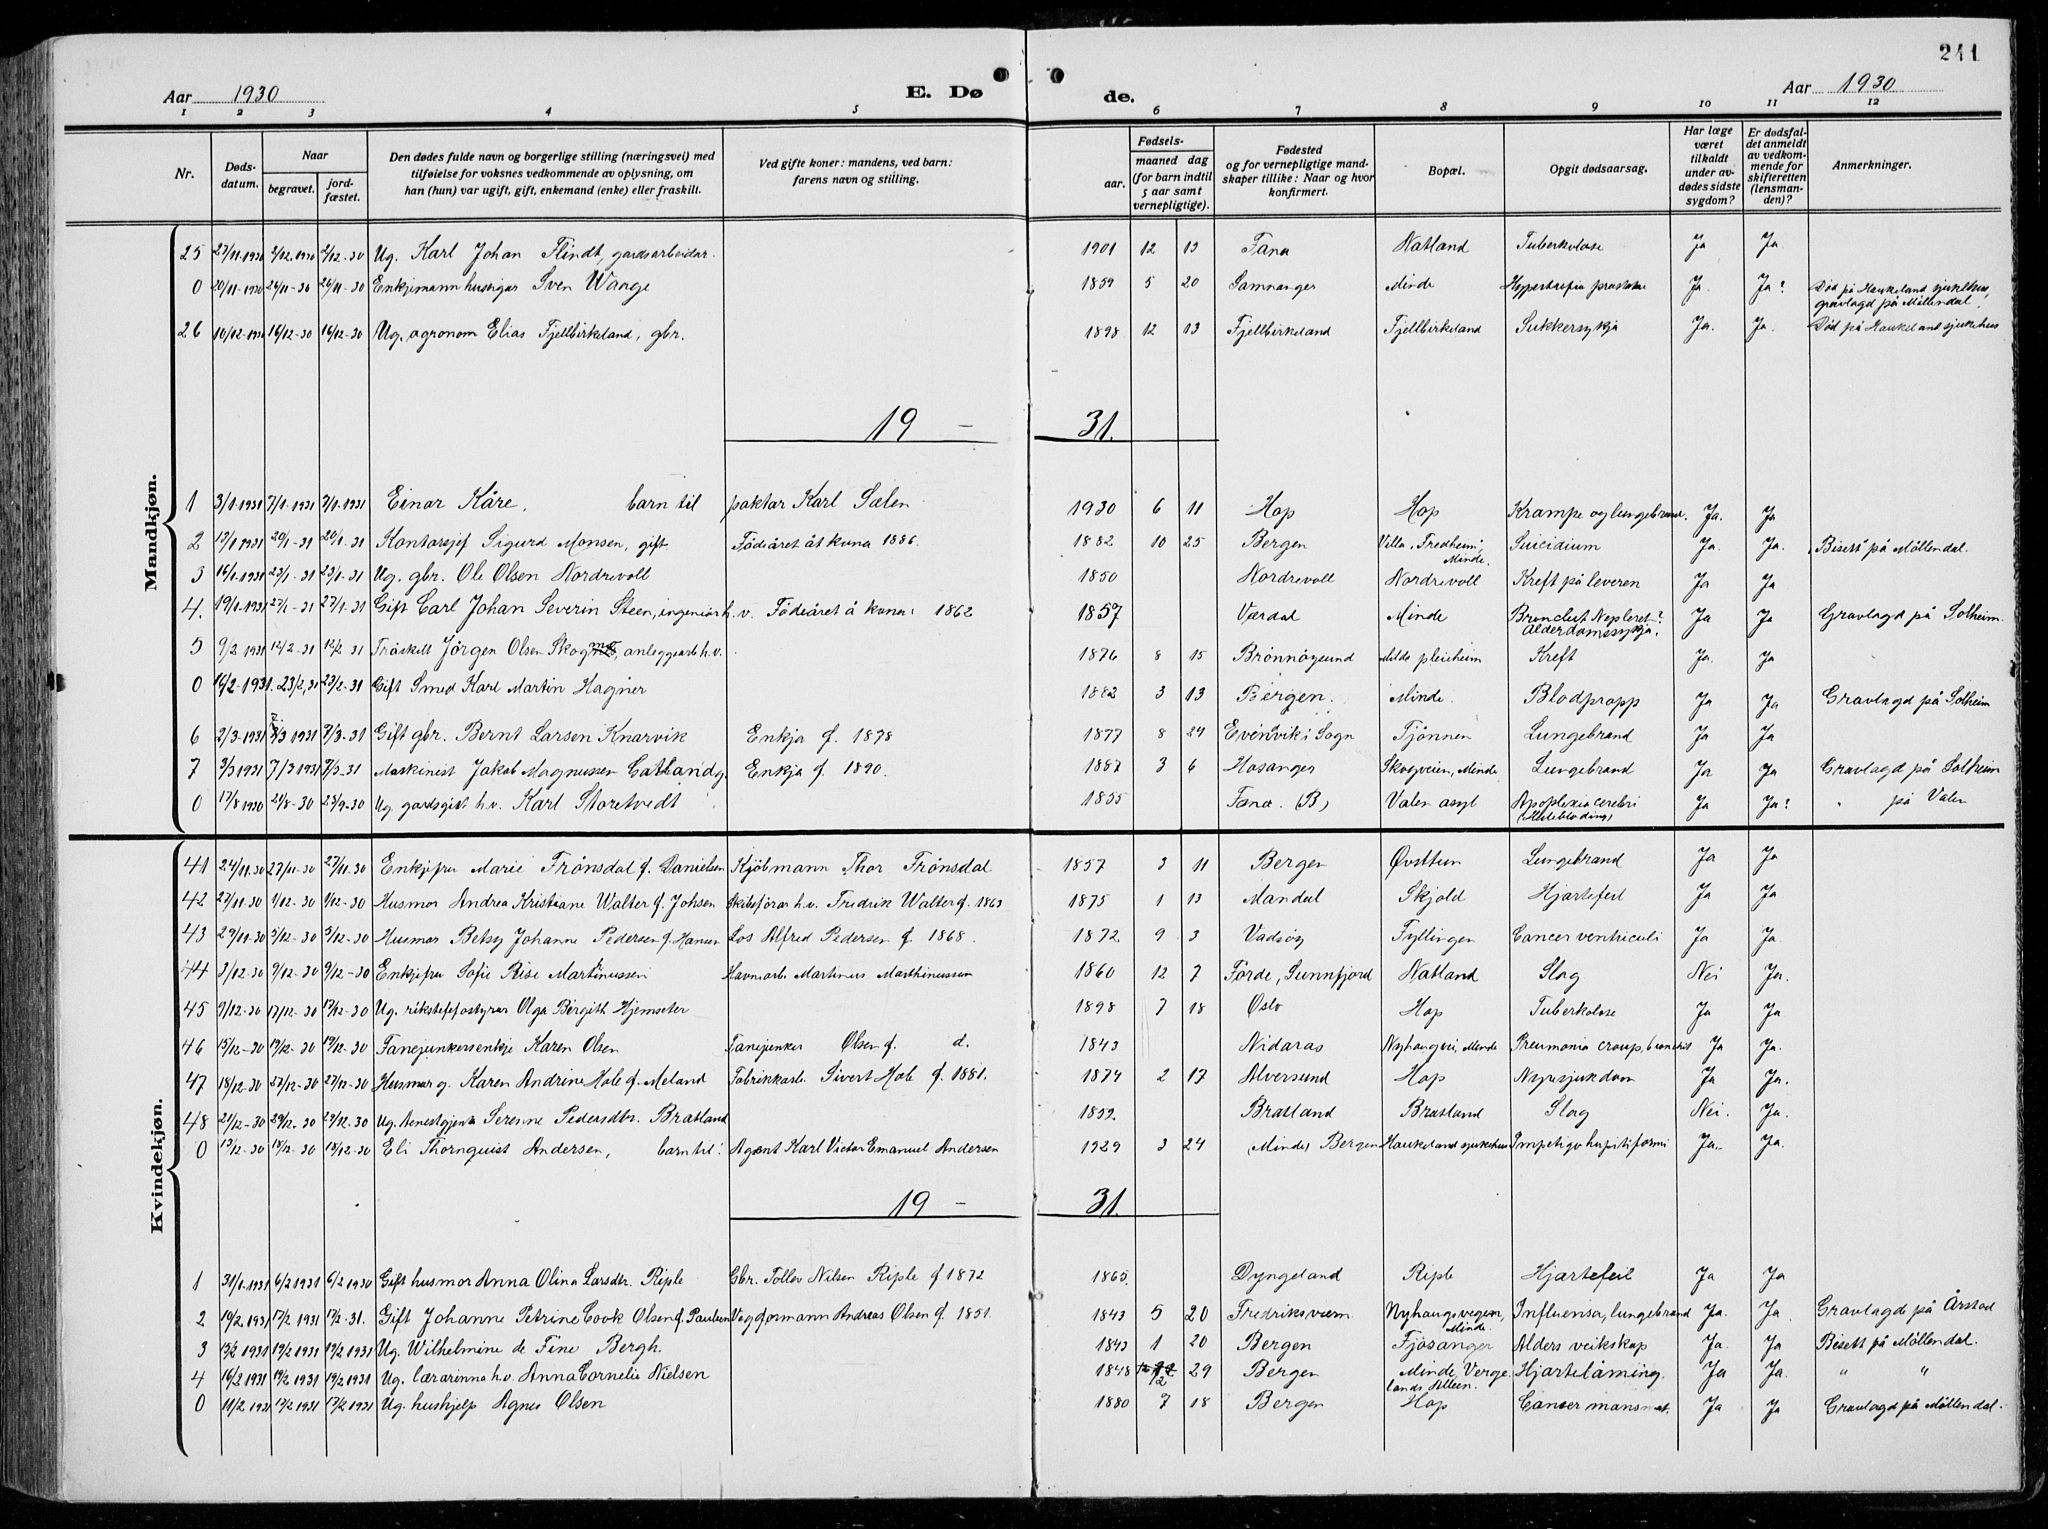 241
Aar 1930 E. Dø de. Aar 1930
1 2 3 4 5 6 7 8 9 10 11 12
Nr. Dødsdatum. Naar begravet. jordfæstet. Den dødes fulde navn og borgerlige stilling (næringsvei) med tilføielse for voksnes vedkommende av oplysning, om han (hun) var ugift, gift, enkemand (enke) eller fraskilt. Ved gifte koner: mandens, ved barn: farens navn og stilling. Fødsels- aar. maaned dag (for barn indtil 5 aar samt vernepligtige). Fødested og for vernepligtige mandskaper tillike: Naar og hvor konfirmert. Bopæl. Opgit dødsaarsag. Har læge været tilkaldt under avdødes sidste sygdom? Er dødsfaldet anmeldt av vedkommende for skifteretten (lensmanden)? Anmerkninger.
Mandkjøn.
25 27/11-1930 2/12.1930 2/12-30 Ug. Karl Johan Flindt, gardsarbeidar. 1901 12 13 Fana Natland Tuberkolose Ja Ja
0 20/11-1930 26/11-30 26/11-30 Enkjemann huseigar Sven Waage 1859 5 20 Samnanger Minde Hypertrofia prostatae Ja. Ja? Död på Haukeland sjukehus, gravlagd på Möllendal.
26 10/12-1930 16/12-30 16/12-30 Ug. agronom Elias Fjellbirkeland, gbr. 1898 12 13 Fjellbirkeland Fjellbirkeland Sukkersykja Ja. Ja. Död på Haukeland sjukehus
19 - 31.
1 3/1-1931 7/1-1931 7/1-1931 Einar Kåre, barn til paktar Karl Sælen 1930 6 11 Hop Hop Krampe og lungebrann. Ja. Ja
2 1931 20/1-31 20/1-31 Kontorsjef Sigurd Monsen, gift. Födeåret åt kona 1886. 1882 10 25 Bergen Villa "Fredheim", Minde. Suicidium Ja. Ja. Bisett på Möllendal.
3 16/1-1931 23/1-31 23/1-31 Ug. gbr. Ole Olsen Nordrevoll 1850 Nordrevoll Nordrevoll Kreft på leveren Ja Ja
4. 19/1-1931 27/1-31 27/1-31 Gift Carl Johan Severin Steen, ingeniør h.v. Födeåret å kona: 1862 1857 Værdal Minde Alderdomssykja. Ja Ja Gravlagd på Solheim.
5 9/2 1931 12/2-31 12/2 31 Fråskilt Jörgen Olsen anleggsarb. h.v. 1876 8 15 Brönnöysund Milde pleieheim Kreft Ja. Ja
0 16/2-1931. 23/2,31 23/2-31 Gift Smed Karl Martin Hagner 1882 3 13 Bergen. Minde. Blodpropp Ja Ja Gravlagd på Solheim
6 2/3-1931 7/3 1931 7/3-31 Gift gbr. Bernt Larsen Knarvik Enkja f. 1878 1877 8 24 Evenvik i Sogn Tjönnen Lungebrand Ja Ja
7 3/3 1931 7/3 1931 7/3-31 Maskinist Jakob Magnussen Catland g. Enkja f. 1890. 1887 3 6 Hosanger Skogveien, Minde Lungebrand Ja Ja Gravlagd på Solheim
0 17/8 1930 21/8-30 23/9-30 Ug. gardsgut h.v. Karl Storetvedt 1855 Fana. (B) Valen asyl Apoplexia cerebri Ja Ja? " på Valen
Kvindekjøn.
41 24/11.30 27/11-30 27/11.30 Enkjefru Marie Trönsdal f. Danielsen Kjöbmann Thor Trönsdal 1857 3 11 Bergen Øvsttun Lungebrand Ja Ja
42 27/11-30 1/12-30 1/12-30 Husmor Andrea Kristiane Walter f. Johsen h.v. Fredrik Walter f. 1863 1875 1 13 Mandal Skjold Hjartefeil Ja Ja
43 29/11-30 5/12-30 5/12-30 Husmor Betsy Johanne Pedersen f. Hansen Los Alfred Pedersen f. 1868. 1872 9 3 Vadsöy Fyllingen Cancer ventriculi Ja Ja.
44 3/12-30 9/12-30 9/12-30 Enkjefru Sofie Rise Martinussen Havnearb. Martinus Marthinussen 1860 12 7 Förde, Sunnfjord Natland Slag Nei Ja.
45 9/12-30 17/12-30 17/12-30 Ug. Olga Bergith Hjemseter 1898 7 18 Oslo Hop Tuberkolose Ja Ja
46 15/12-30 19/12-30 19/12-30 Fanejunkersenkje Karen Olsen Fanejunker Olsen f. d. 1843 Nidaros Nyhaugvei, Minde Pneumonia croup, bronchit Ja Ja.
47 18/12-30 27/12-30 27/12-30 Husmor g. Karen Andrine Hole f. Meland Fabrikkarb. Sivert Hole f. 1881. 1874 2 17 Alversund Hop Nyresjukdom Ja Ja.
48 21/12-30 29/12.30 29/12.30 Ug. Serenne Pedersdtr. Bratland 1859. Bratland Bratland Slag Nei. Ja.
0 13/12-30 18/12-30 18/12-30 Eli Thornquist Andersen, barn til: Agent Karl Victor Emanuel Andersen 1929 3 24 (Minde) Bergen Haukeland sjukehus Impetigo Ja. Ja.
19 - 31.
1 31/1-1931 6/2 1931 6/2 1930 Gift husmor Anna Olina Larsdtr. Riple Gbr. Tollev Nilsen Riple f 1872 1865. Dyngeland Riple Hjartefeil Ja Ja
2 10/2.1931 17/2 1931 17/2-31. Gift Johanne Petrine Cook Olsen f. Paulsen Vegformann Andreas Olsen f. 1851. 1843 5 20 Fredriksværn Nyhaugsvegen, Minde Influensa, lungebrand Ja. Ja. Gravlagd på Årstad
3 13/2 1931 19/2 1931 19/2 1931 Ug. Wilhelmine de Fine Bergh. 1843 1 20 Bergen Fjösanger Alders veikskap Ja. Ja Bisett på Möllendal.
4 16/2 1931 19/2 1931 19/2 1931 Ug. lærarinna h.v. Anna Cornelie Nielsen 1848 12 29 Bergen Minde, Vergelands Alleen. Hjartelåming. Ja Ja. " "
0 11/2 1931 17/2 1931 17/2 1931 Ug. hushjelp Agnes Olsen 1880 7 18 Bergen Hop Cancer Ja Ja Gravlagd på Möllendal.